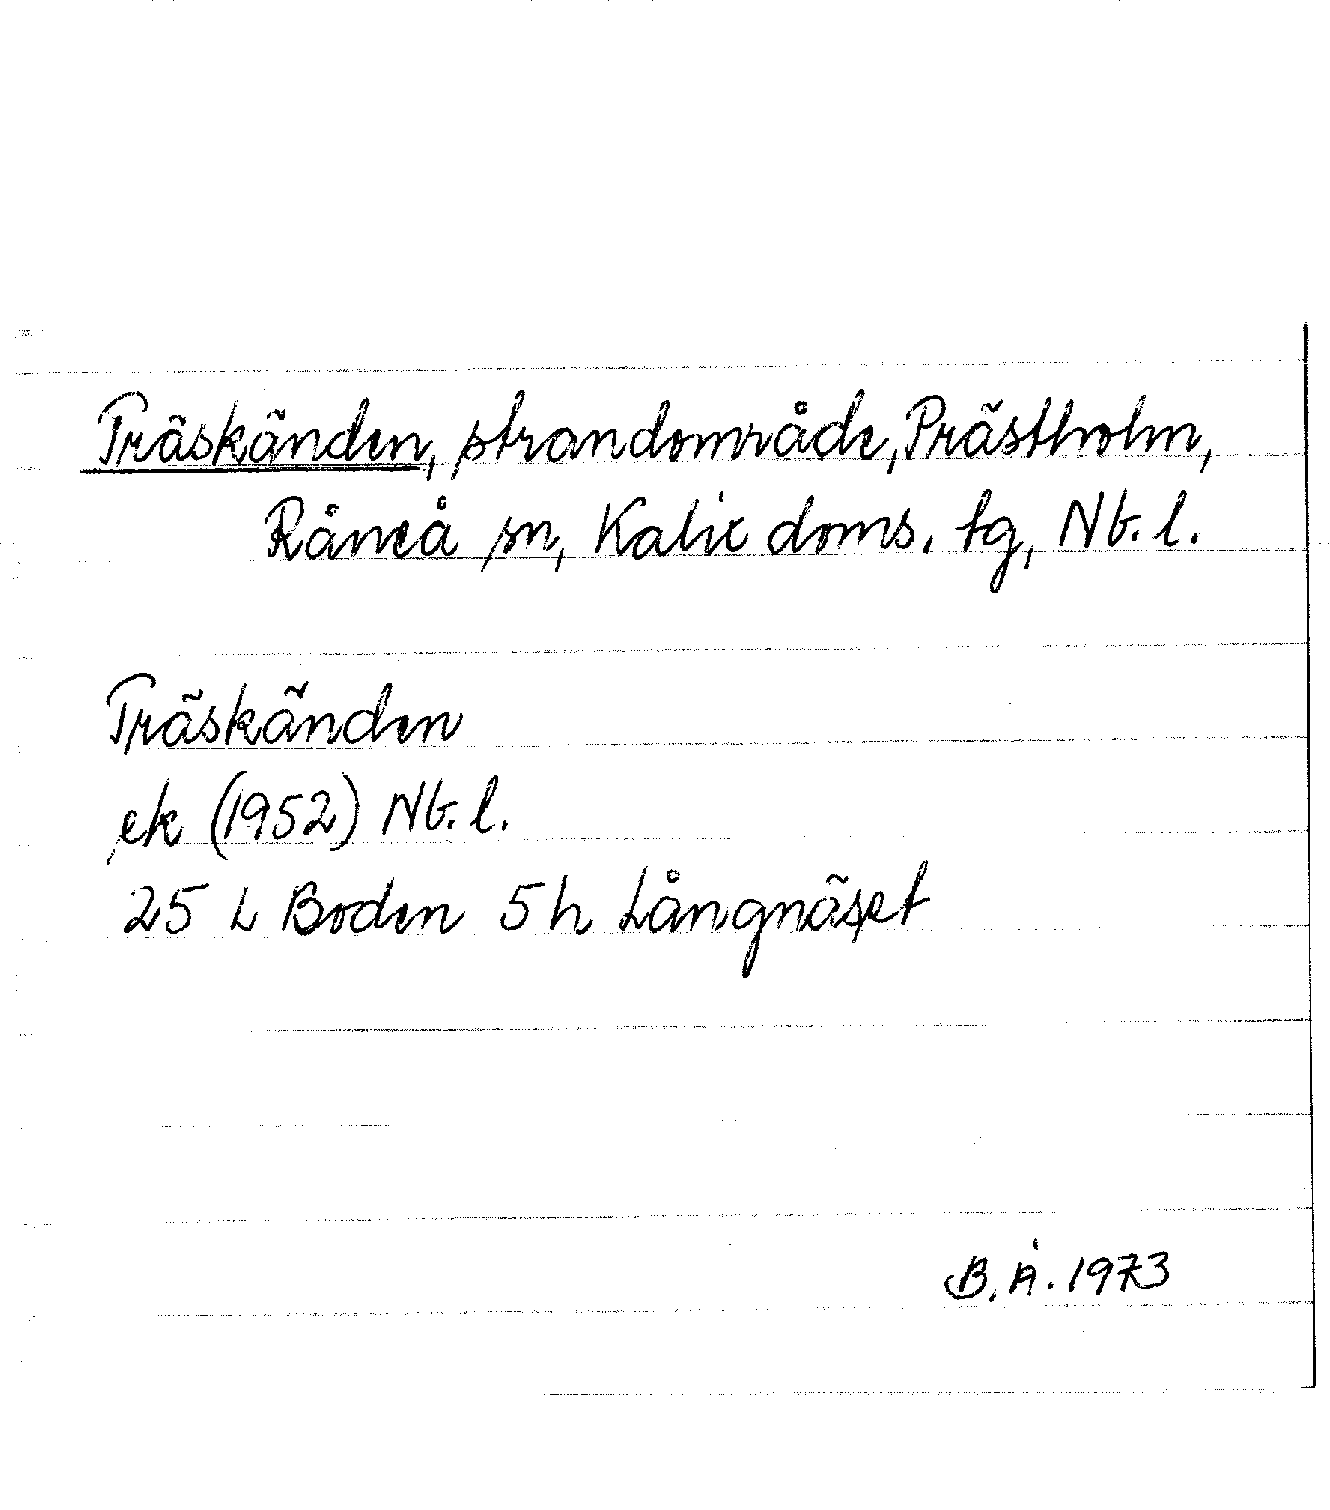 Träskänden, strandområde, Prästholm,
Råneå sn, Kalix doms. tg, Nb. l.
Träskänden
ek (1952) Nb. l.
25 L Boden 5h Långnäset
B. Å. 1973